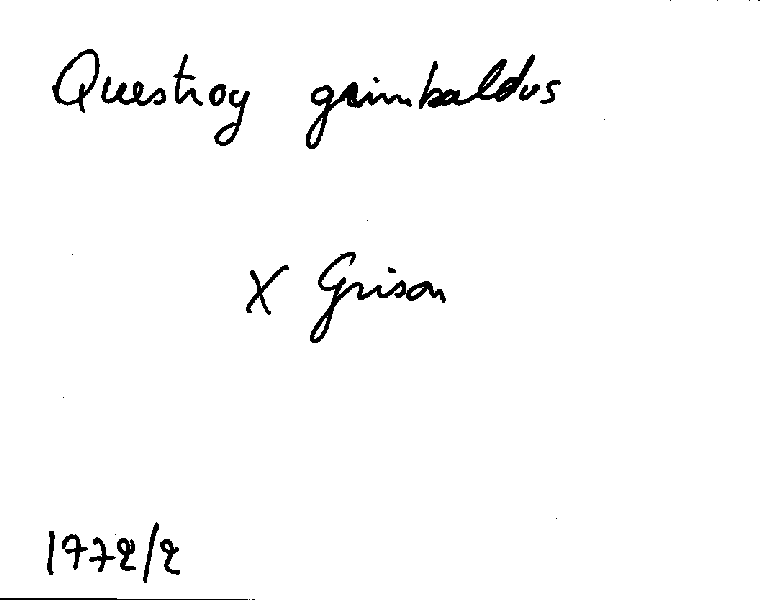 Questroy grimbaldus
X Grison
1772/2